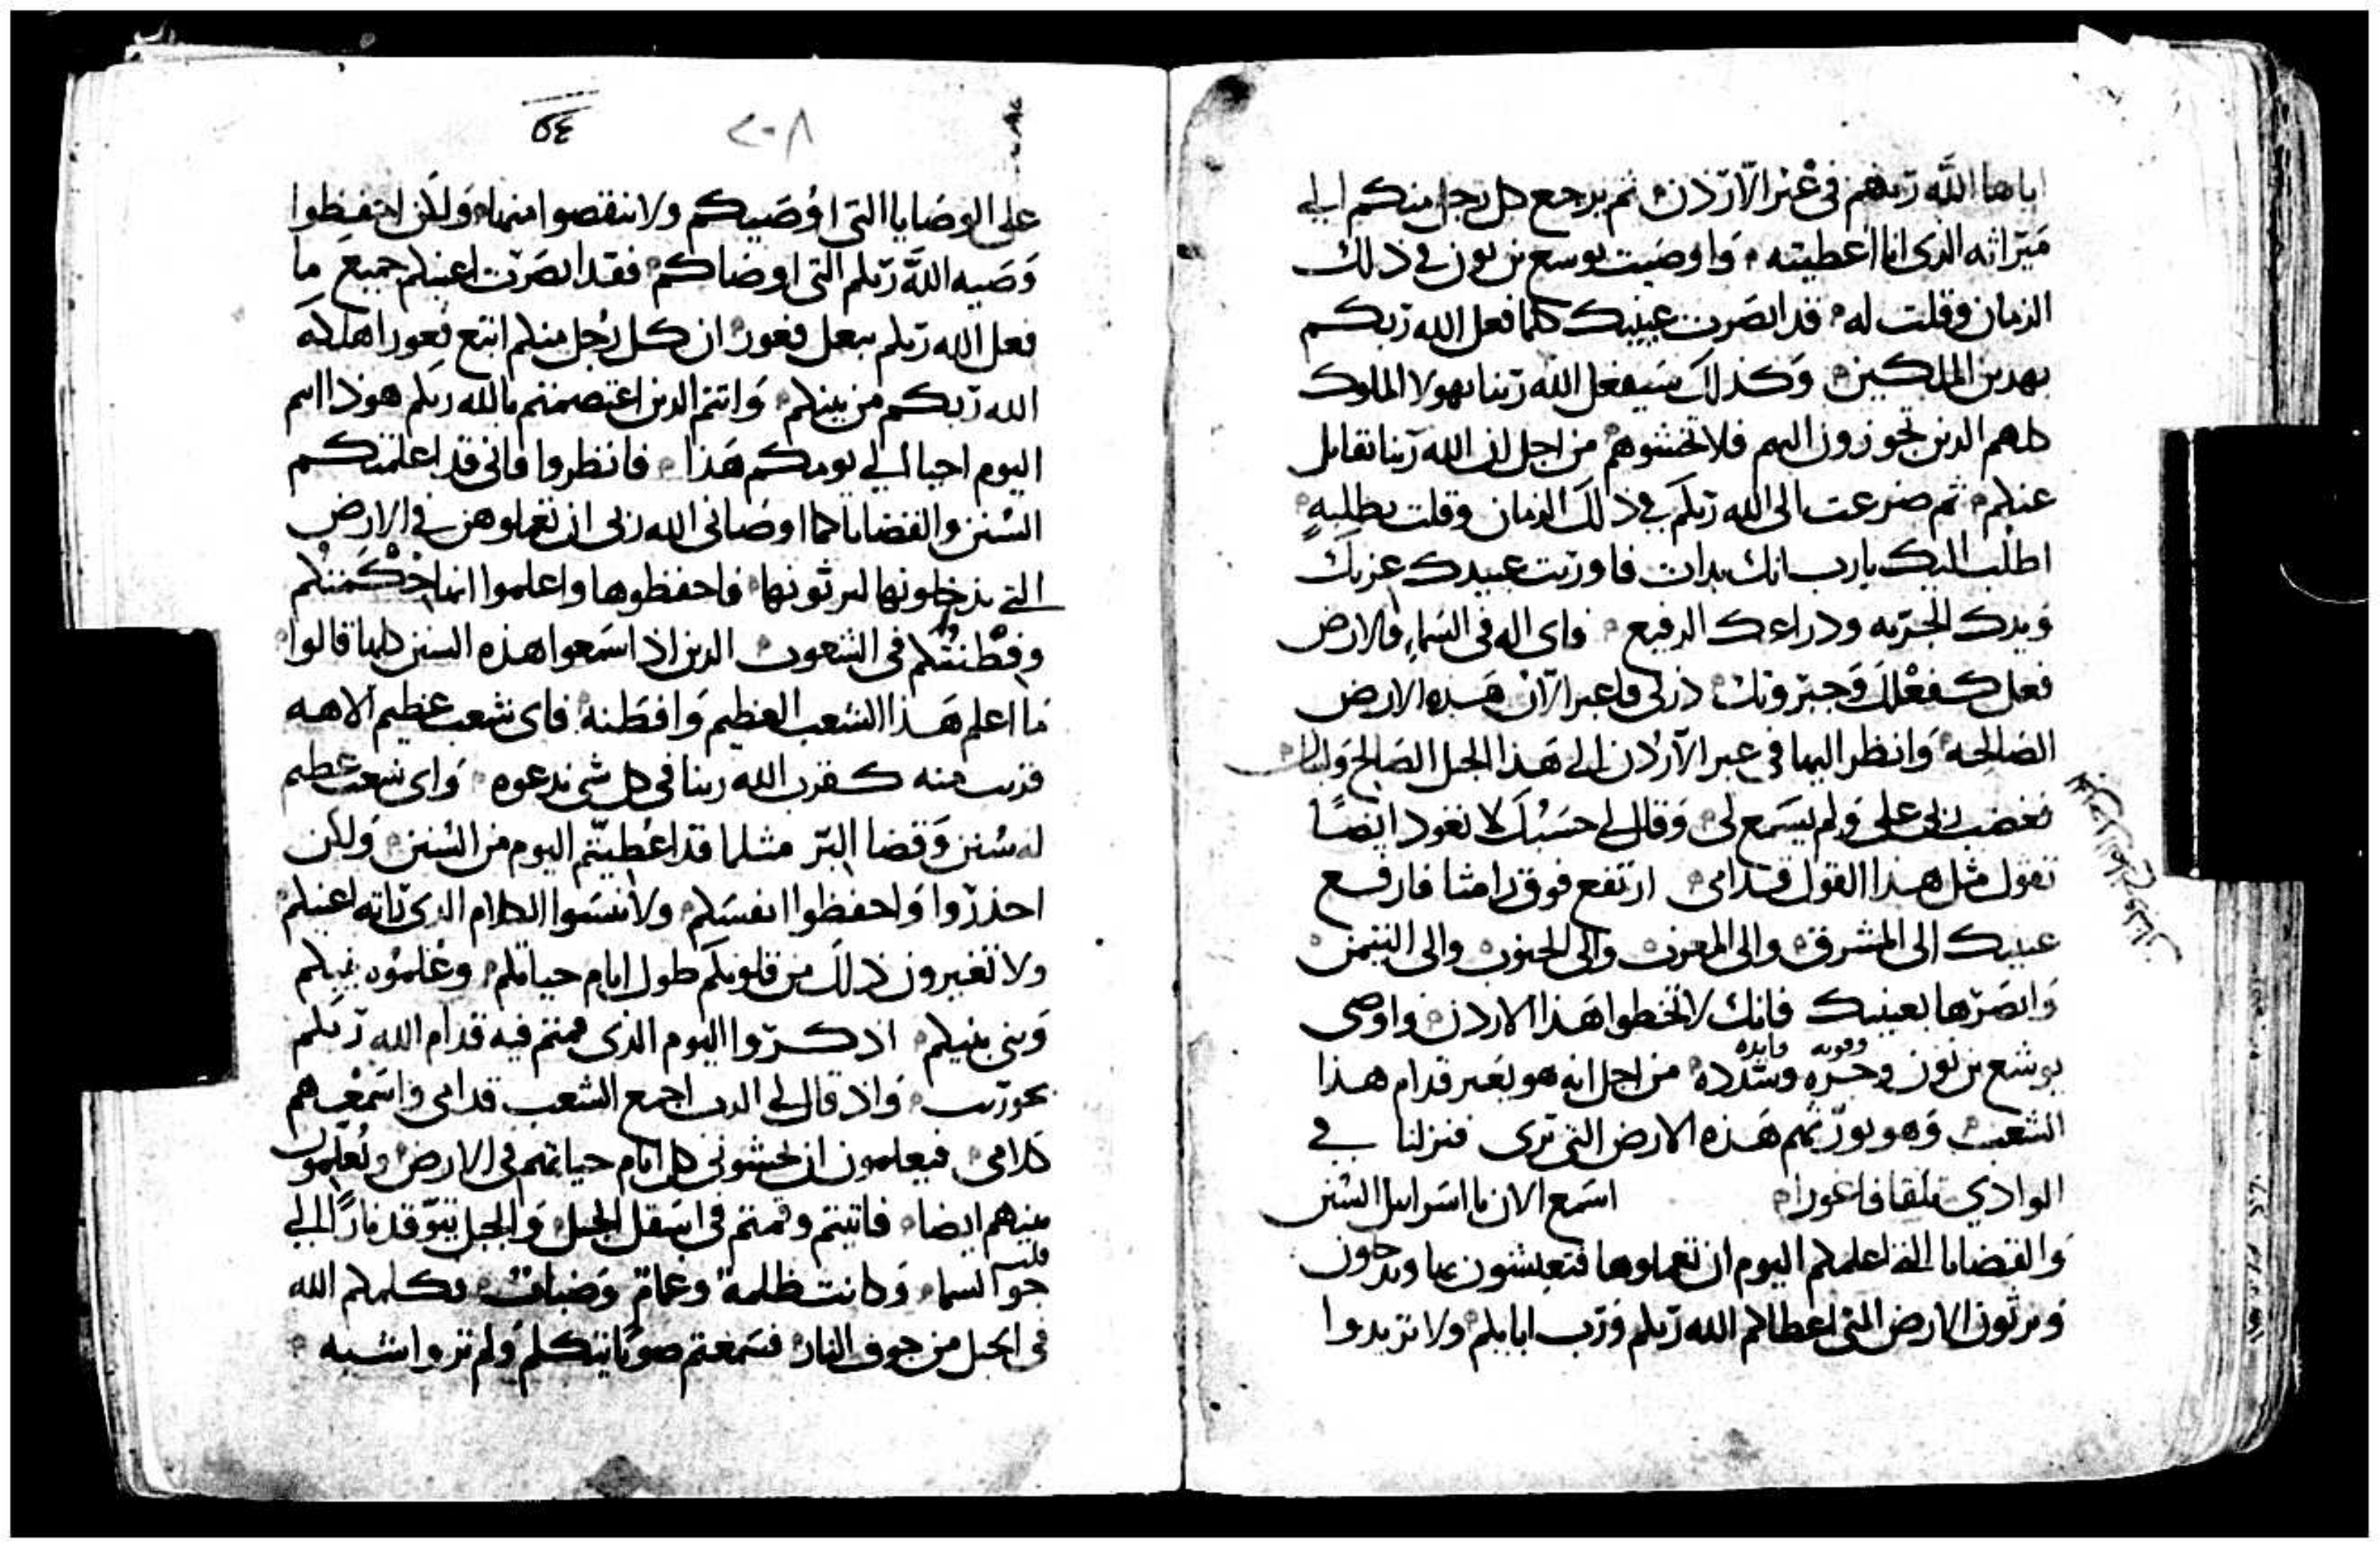 اياها الله ربهم في عبر الاردن ثم يرجع كل رجل منكم الي
ميراثه الذي انا اعطيته وَاوصَيت يوسع بن نون في ذلك
الزمان وقلت له قد ابصَرت عينيك كلما فعل الله ربكم
بهدين الملكين وَكذلك سَيفعل الله ربنا بهولا الملوك
كلهم الدين تجوزون اليهم فلا تخشوهم من اجل ان الله ربنا يقاتل
عنكم ثم ضرعت الى الله ربكم في ذلك الزمان وقلت بطلبه
اطلب اليك يارب انك بدات فاوريت عبيدك عزتك
وَيدك الجريه ودراعك الرفيع فاى اله في السَماء والارض
فعل كفعْلك وَجبروتك ذرني فاعبر الآن هَذه الارض
الصَالحه وَانظر اليها في عبر الآرْدن الي هَذا الجبل الصَالح ولبنان
فغضب ربى علي وَلم يسَمع لى وَقال لي حسْبك لا تعود ايضًا
تقول مثل هذا القول قدامى ارتفع فوق رامثا فارفع
عينيك الى المشرق والى المغرب والى الجنوب والى التيمن
وَابصَرها بعينيك فانك لا تخطوا هَذا الاردن واوصى
وقويه وايده
يوشع بن نون وجسره وشدده من اجل انه هو يعبر قدام هذا
الشعب وَهو يورثهم هَذه الارض التي ترى فنزلنا في
الوادي تلقا فاغورا اسَمع الان يا اسَراييل السُنن
وَالقضايا التي اعلمكم اليوم ان تعملوها فتعيشون بها وتدخلون
وَترثون الارض التي اعطاكم الله ربكم وَرَب ابايكم ولا تزيدوا
٢٠٨
على الوصَايا التي اوُصَيكم ولا تنقصوا منها وَلكن احفظوا
وَصَيه الله ربكم التي اوصَاكم فقد ابصَرت اعينكم جميع ما
فعل الله ربكم ببعل فغور ان كل رجُل منكم اتبع فعورا هلكه
الله ربكم من بينكم وَانتم الدين اعتصمتم بالله ربكم هوذا انتم
اليوم احيا الي يومكم هَذا فانظروا فاني قد اعلمتكم
السُنن والقضايا كما اوصَاني الله ربي ان تعملوهن في الارض
التي تدخلونها لترثونها فاحفظوها واعلموا انها حْكمَتكم
وفطْنتُكم في الشعوب الدين اذا سَمعوا هذه السنن كلها قالوا
ما اعلم هَذا الشعب العظيم وَافطَنه فاى شعب عظيم الاهه
قريب منه كقرب الله ربنا في كل شي ندعوه وَاى شعب عظيم
له سُنن وَقضا البر مثلما قد اعْطيتتم اليوم من السُنن وَلكن
احذروا وَاحفظوا انفسَكم ولا تنسَوا الكلام الذي راته اعينكم
ولا تغيرون ذلك من قلوبكم طول ايام حياتكم وَعْلموُه بنيكم
وَبني بنيكم اذكروا اليوم الذي قمتم فيه قدام الله ربكم
بحوريب وَاذ قال لي الرب اجمع الشعب قدامى واسَمعْهم
كلامي فيعلمون ان يخشوني كل ايام حياتهم في الارض وَيعلموُن
بنيهم ايضا فاتيتم وقمتم في اسَفل الجبل وَالجبل يتوقد نارًا الي
قلب
جو السما وَكانت ظلمة وغمام وَضباب فكلمكم الله
في الجبل من جوف النار فسَمعتم صوتًا يتكلم وَلم تروا شبه